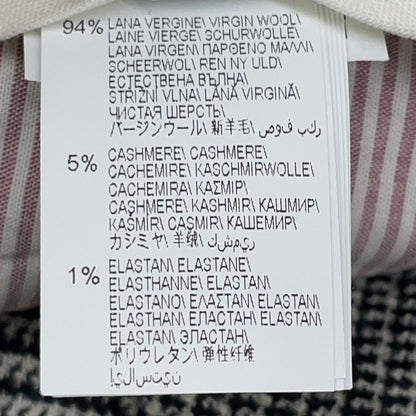 94% LANA VERGINE\ VIRGIN WOOL\
LAINE VIERGE\ SCHURWOLLE\
LANA VIRGEN\ ΠΑΡΘΕΝΟ ΜΑΛΛΙ\
SCHEERWOL\ REN NY ULD\
ЕСТЕСТВЕНА ВЪЛНА\
STŘIŽNÍ VLNA\ LÂNĂ VIRGINĂ\
ЧИСТАЯ ШЕРСТЬ\
バージンウール\ 新羊毛\ صوف بكر
5% CASHMERE\ CASHMERE\
CACHEMIRE\ KASCHMIRWOLLE\
CACHEMIRA\ ΚΑΣΜΙΡ\
CASHMERE\ KASHMIR\ КАШМИР\
KAŠMÍR\ CAŞMIR\ КАШЕМИР\
カシミヤ\ 羊绒\ كشمير
1% ELASTAN\ ELASTANE\
ELASTHANNE\ ELASTAN\
ELASTANO\ ΕΛΑΣΤΑΝ\ ELASTAN\
ELASTHAN\ ЕЛАСТАН\ ELASTAN\
ELASTAN\ ЭЛАСТАН\
ポリウレタン\ 弹性纤维\
إيلاستين